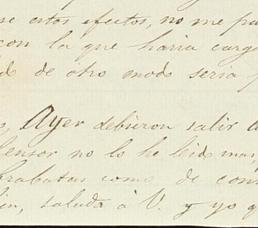 estos efectos, no me pa
con la que haria carg
de otro modo seria
Ayer debieron salir
Censor no lo he leido mas
como de con
saluda á V. y yo q